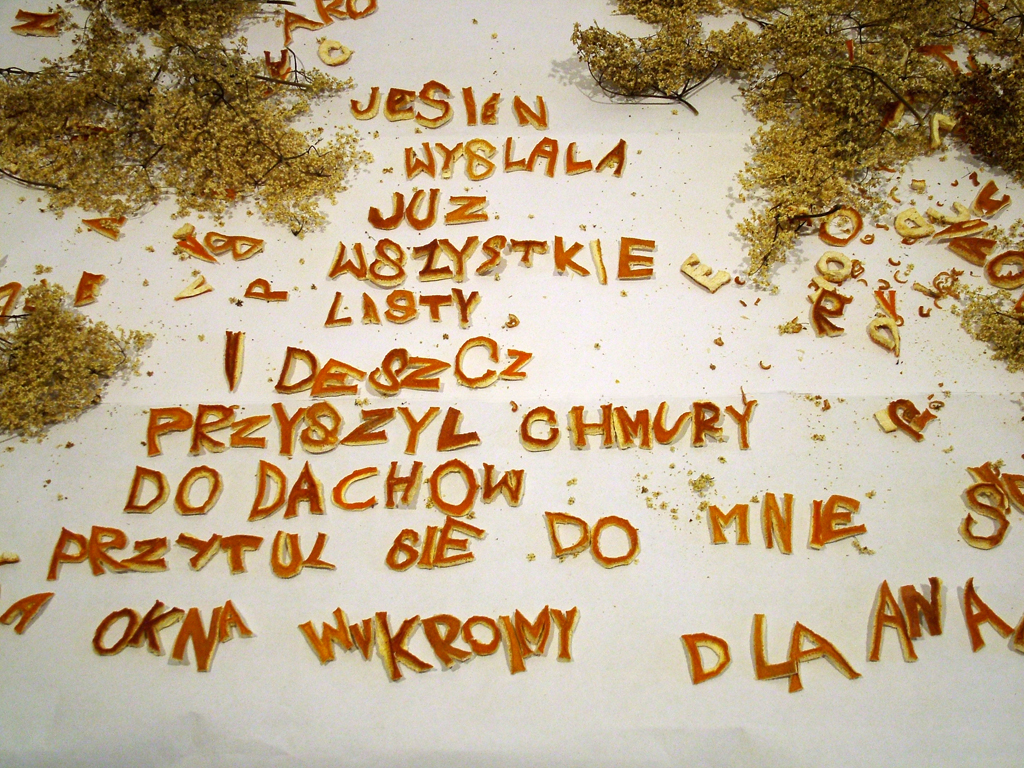 JESIEN
WYSLALA
JUZ
WSZYSTKIE
LISTY
I DESZCZ
PRZYSZYL CHMURY
DO DACHOW
PRZYTUL SIE DO MNIE
OKNA WYKROIMY DLA